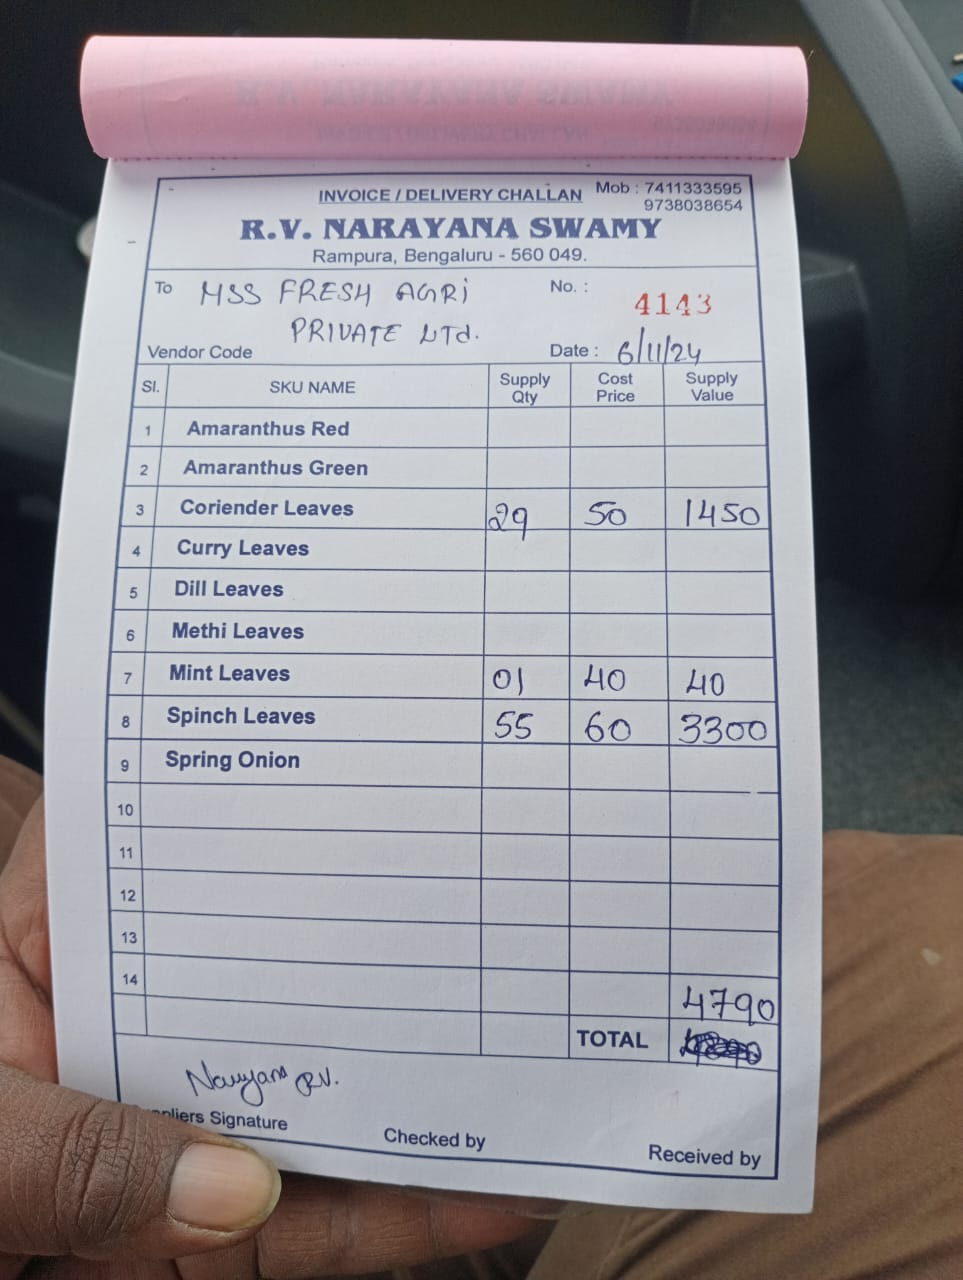 INVOICE / DELIVERY CHALLAN Mob : 7411333595
9738038654
R.V. NARAYANA SWAMY
Rampura, Bengaluru - 560 049.
To MSS FRESH AGRI No. : 4143
PRIVATE LTd.
Vendor Code Date : 6/11/24
Sl. SKU NAME Supply Qty Cost Price Supply Value
1 Amaranthus Red
2 Amaranthus Green
3 Coriender Leaves 29 50 1450
4 Curry Leaves
5 Dill Leaves
6 Methi Leaves
7 Mint Leaves 01 40 40
8 Spinch Leaves 55 60 3300
9 Spring Onion
10
11
12
13
14 4790
TOTAL
R.V.
Signature Checked by Received by